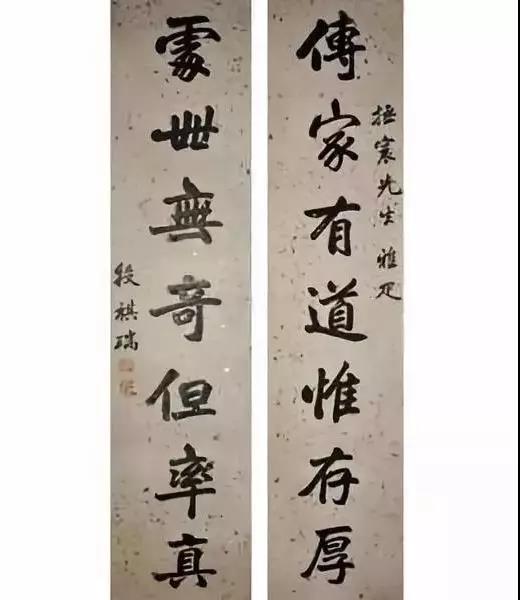 傳家有道惟存厚
拯寰先生雅疋
處世無奇但率真
段祺瑞